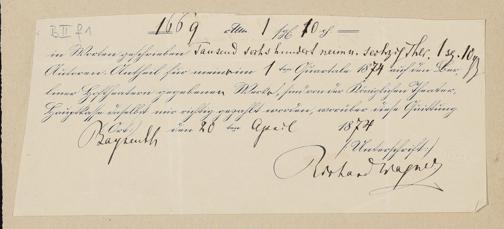 1669 Thlr 1 sg 10 ₰
in Worten geschrieben Tausend sechshundert neun u. sechzig Thlr. 1 sg. 10 ₰
Autoren-Antheil für meine im 1 ten Quartale 1874 auf den Ber-
liner Hoftheatern gegebenen Werke, sind von der Königlichen Theater-
Hauptkasse daselbst mir richtig gezahlt worden, worüber diese Quittung
(Ort:) den 20 ten April 1874
Bayreuth
(Unterschrift:)
Richard Wagner